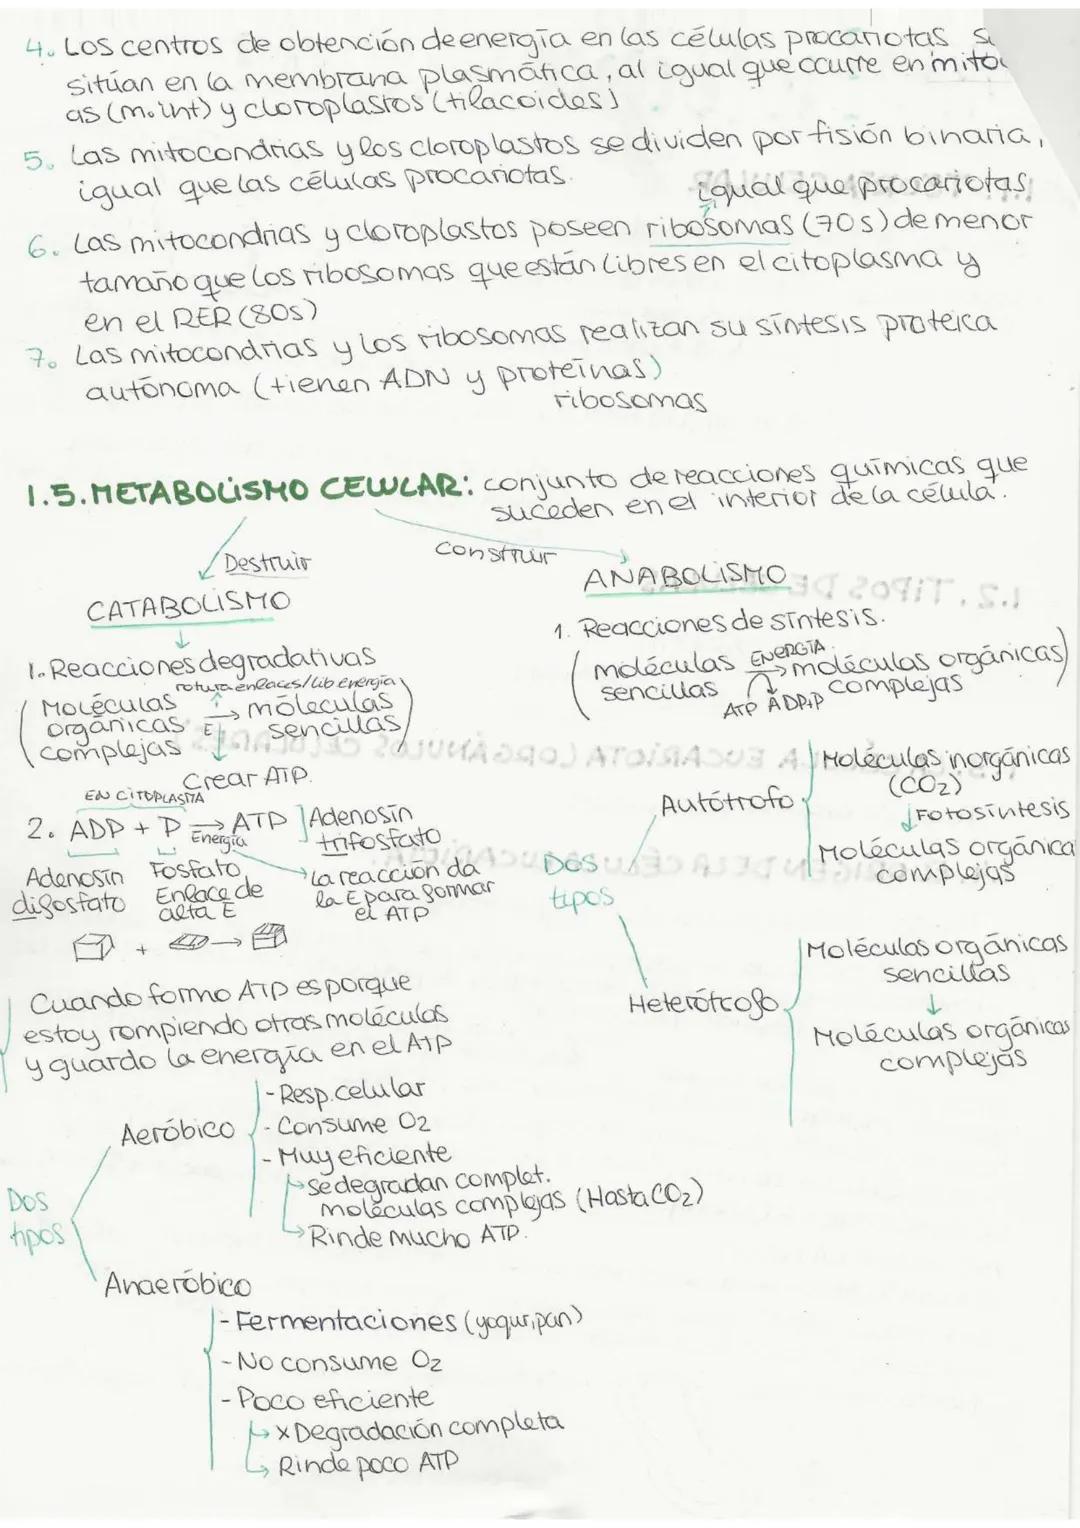 4. Los centros de obtención de energía en las células procariotas
sitúan en la membrana plasmática, al igual que ocurre en mitoc
as (m.int) y cloroplastos (tilacoides)
5. Las mitocondrias y los cloroplastos se dividen por fisión binaria,
igual que las células procariotas.
igual que procariotas
6. Las mitocondrias y cloroplastos poseen ribosomas (70s) de menor
tamaño que los ribosomas que están libres en el citoplasma y
en el RER (80s)
7. Las mitocondrias y los ribosomas realizan su síntesis proteica
autónoma (tienen ADN y proteínas)
ribosomas
1.5. METABOLISMO CELULAR: conjunto de reacciones químicas que
suceden en el interior de la célula.
Destruir
CATABOLISMO
1. Reacciones degradativas
rotura enlaces/lib energía
(Moléculas orgánicas complejas → E → móleculas sencillas)
Crear ATP.
EN CITOPLASMA
2. ADP + P → ATP ] Adenosín
Energía
trifosfato
Adenosín
difosfato
Fosfato
Enlace de
alta E
la reacción da
la E para formar
el ATP
+ →
Cuando formo ATP es porque
estoy rompiendo otras moléculas
y guardo la energía en el ATP
Dos
tipos
Aeróbico
- Resp. celular
- Consume O2
- Muy eficiente
se degradan complet.
moléculas complejas (Hasta CO2)
Rinde mucho ATP.
Anaeróbico
- Fermentaciones (yogur, pan)
- No consume O2
- Poco eficiente
x Degradación completa
Rinde poco ATP
Construir
ANABOLISMO
1. Reacciones de síntesis.
(moléculas sencillas → moléculas orgánicas complejas)
ENERGÍA
ATP ADP+P
Dos
tipos
Autótrofo
Moléculas inorgánicas
(CO2)
↓ Fotosíntesis
Moléculas orgánica
complejas
Heterótrofo
Moléculas orgánicas
sencillas
↓
Moléculas orgánicas
complejas